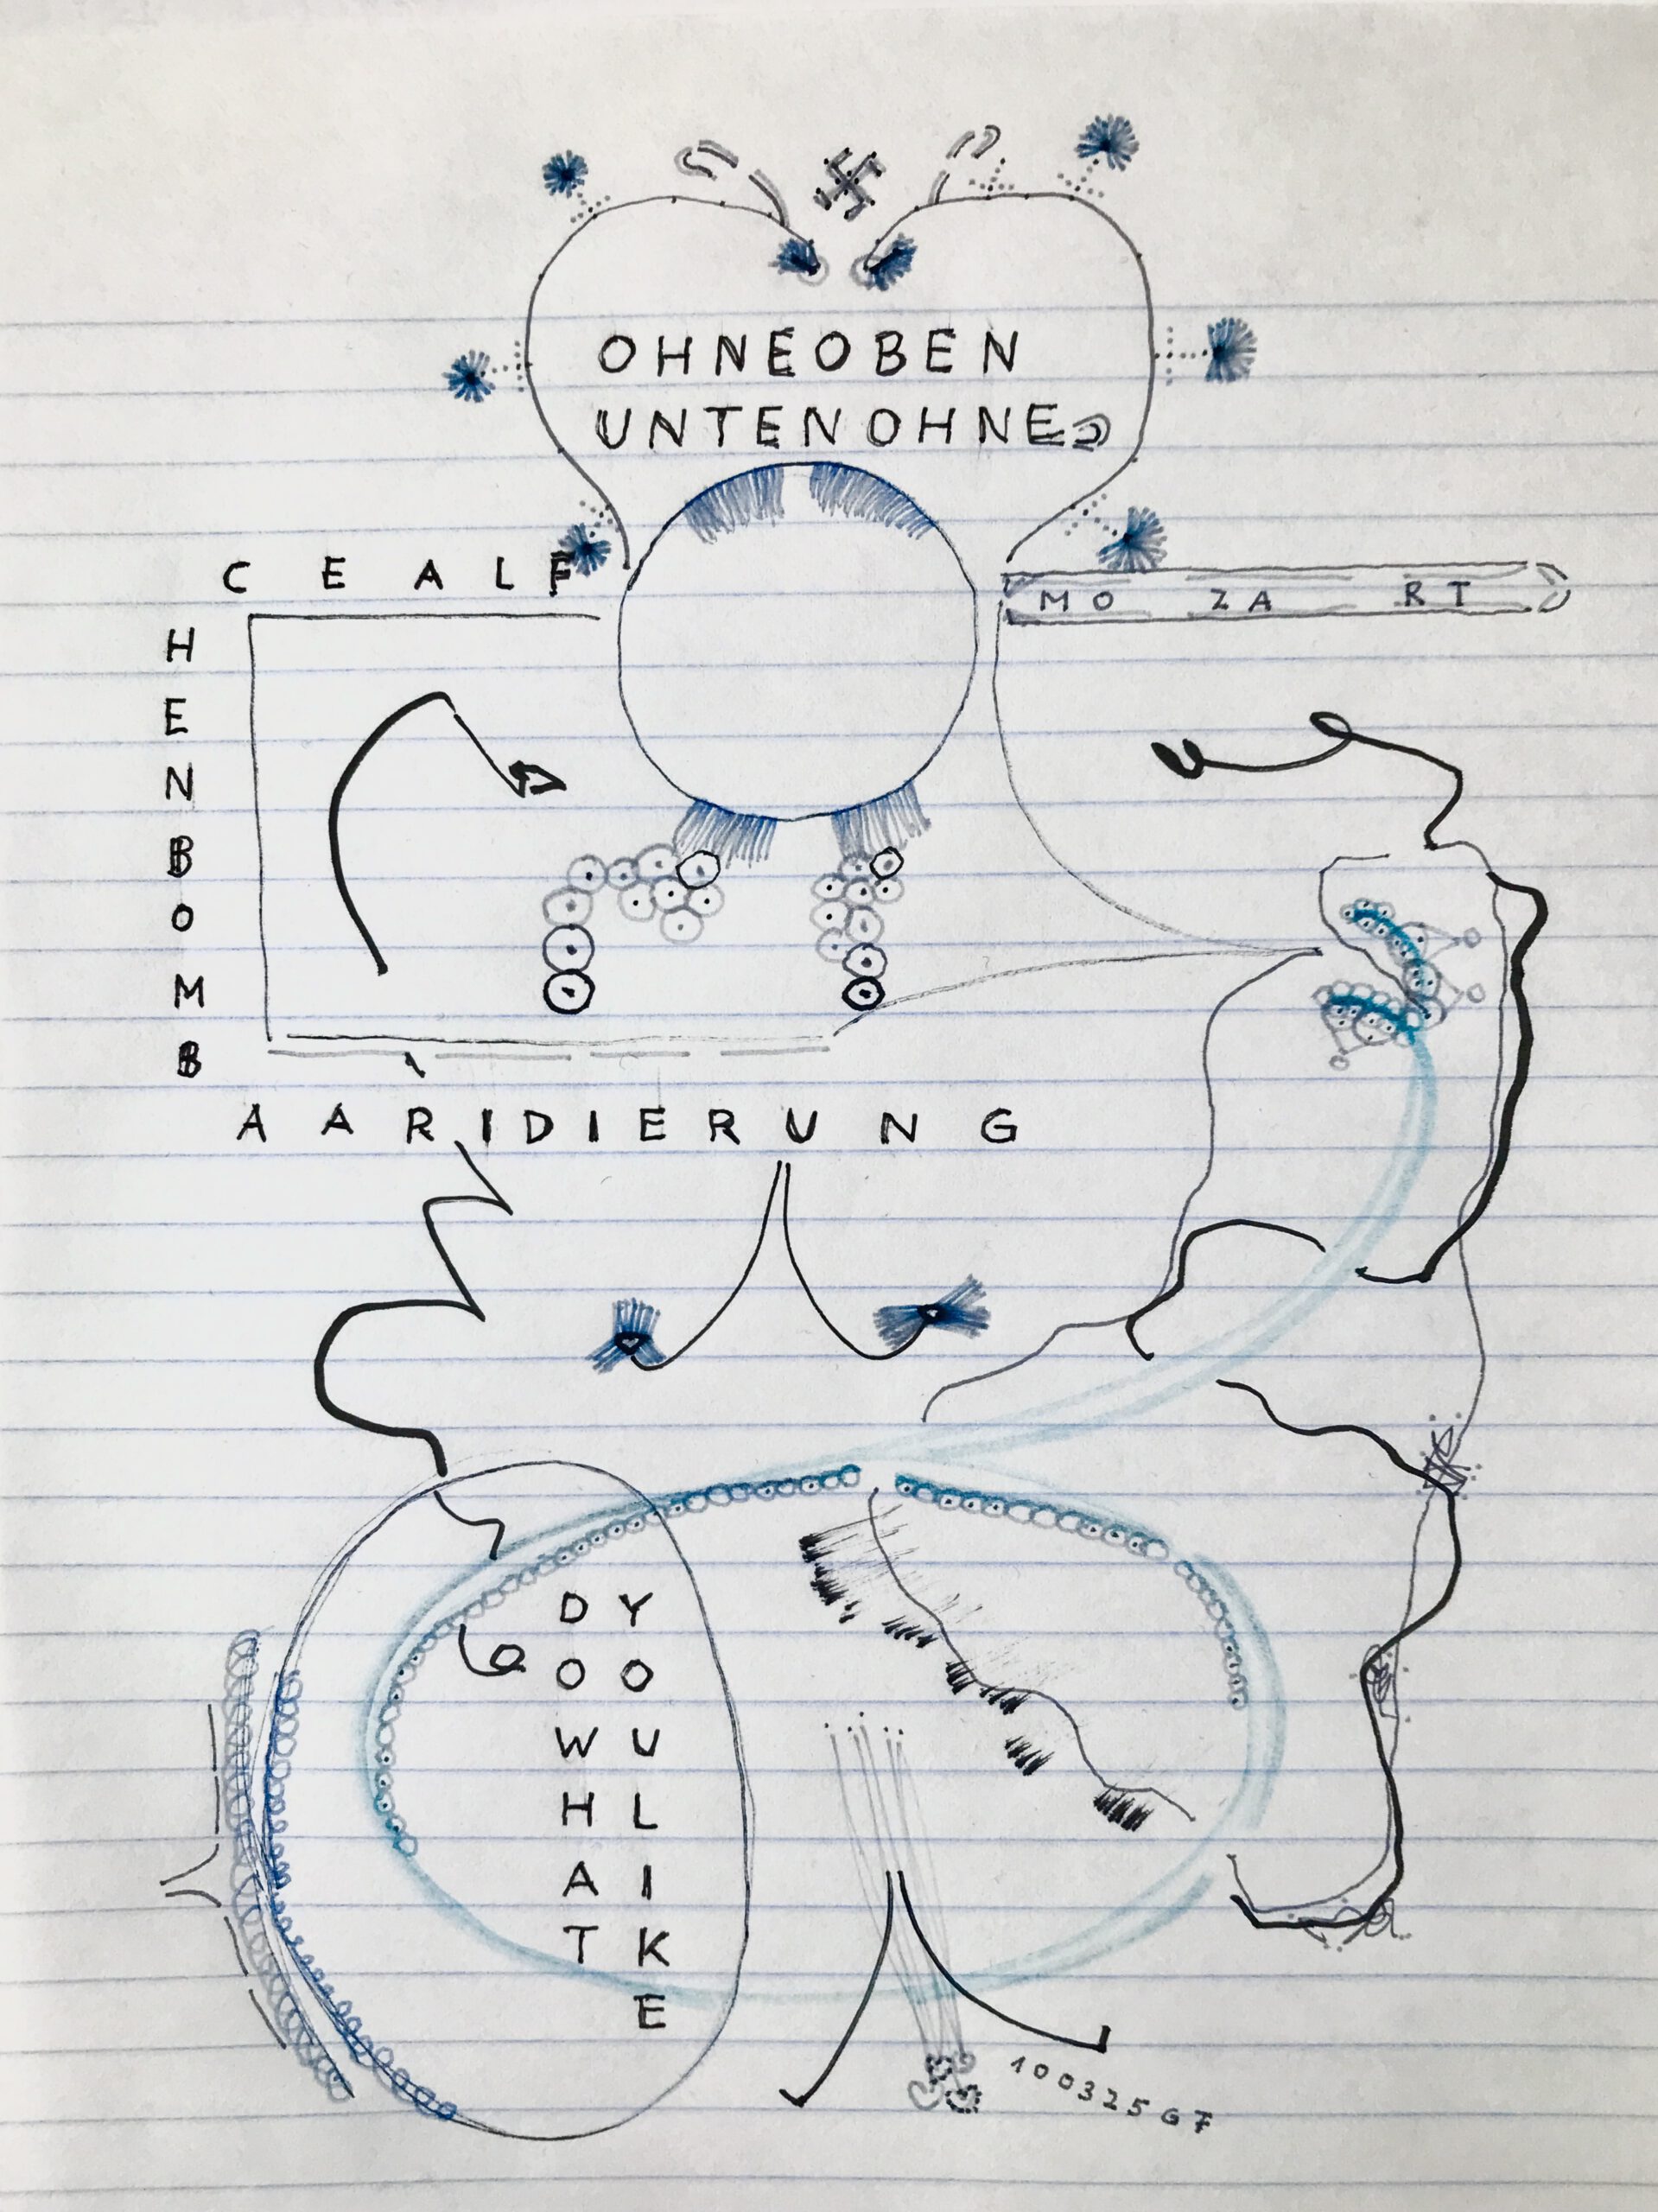 OHNEOBEN
UNTENOHNE
CEALF
HENBOMB
MO ZA RT
AARIDIERUNG
DOWHAT
YOULIKE
100325GF